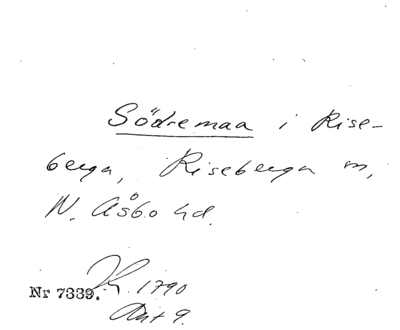 Södremaa i Rise-
berga, Riseberga sn,
N. Åsbo hd.
Nr 7339. 1790
Akt 9.